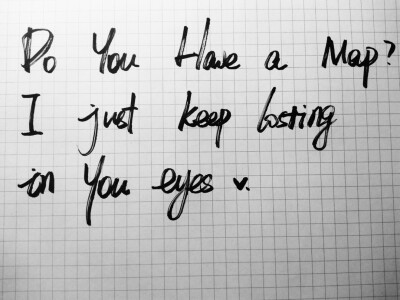 Do You Have a Map?
I just keep losting
in you eyes ♥.